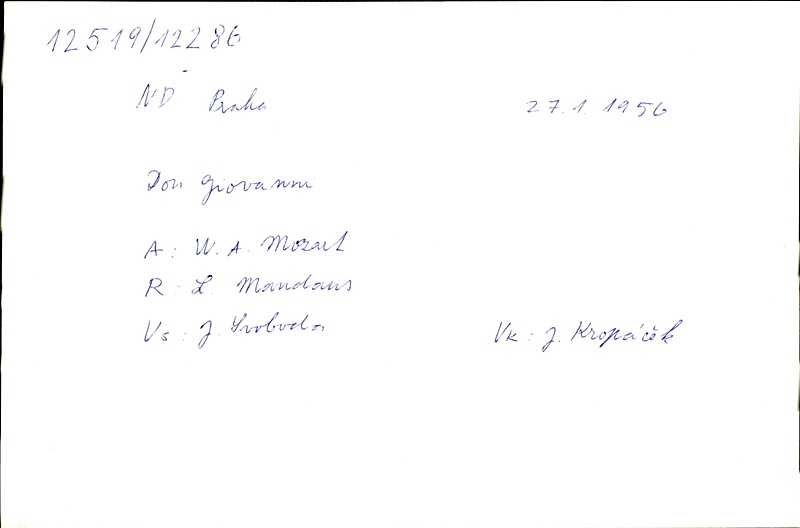 12519/12286
ND Praha 27. 1. 1956
Don Giovanni
A: W. A. Mozart
R: L. Mandaus
Vs: J. Svoboda Vk: J. Kropáček